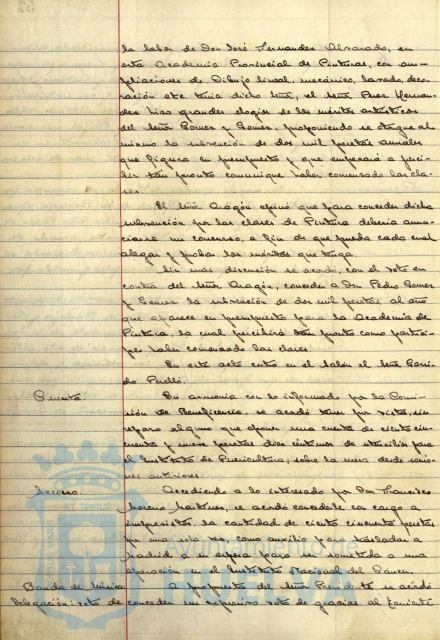 la labor de Don José Fernandez Alvarado, en
esta Academia Provincial de Pinturas, con am-
pliaciones de Dibujo lineal, mecánico, lavado, deco-
ración etc. tenia dicho señor, el Señor Perez Hernan-
dez hizo grandes elogios de los méritos artísticos
del Señor Gomez y Gomez, proponiendo se otorgue al
mismo la subvención de dos mil pesetas anuales
que figura en presupuesto y que empezará a perci-
bir tan pronto comunique haber comenzado las cla-
ses.
El Señor Aragón opinó que para conceder dicha
subvención por las clases de Pintura debería anun-
ciarse un concurso, a fin de que pueda cada cual
alegar y probar los méritos que tenga.
Sin mas discusión se acordó, con el voto en
contra del Señor Aragón, conceder a Don Pedro Gomez
y Gomez la subvención de dos mil pesetas al año
que aparece en presupuesto para la Academia de
Pintura, la cual percibirá tan pronto como partici-
pe haber comenzado las clases.
En este acto entra en el Salón el Señor Garri-
do Perelló.
Cuenta. En armonia con lo informado por la Comi-
sión de Beneficencia, se acordó
reparo alguno que oponer una cuenta de ciento cin-
cuenta y nueve pesetas diez céntimos de utensilio para
el Instituto de Puericultura, sobre la mesa desde sesio-
nes anteriores.
Socorro. Accediendo a lo interesado por Don Francisco
Moreno Martinez, se acordó concederle con cargo a
imprevistos, la cantidad de ciento cincuenta pesetas
por una sola vez, como auxilio para trasladar a
Madrid a su esposa para ser sometida a una
operación en el Instituto Nacional del Cáncer.
Banda de Música A propuesta del Señor Presidente se acordó
Delegación: voto de conceder un expresivo voto de gracias al Teniente